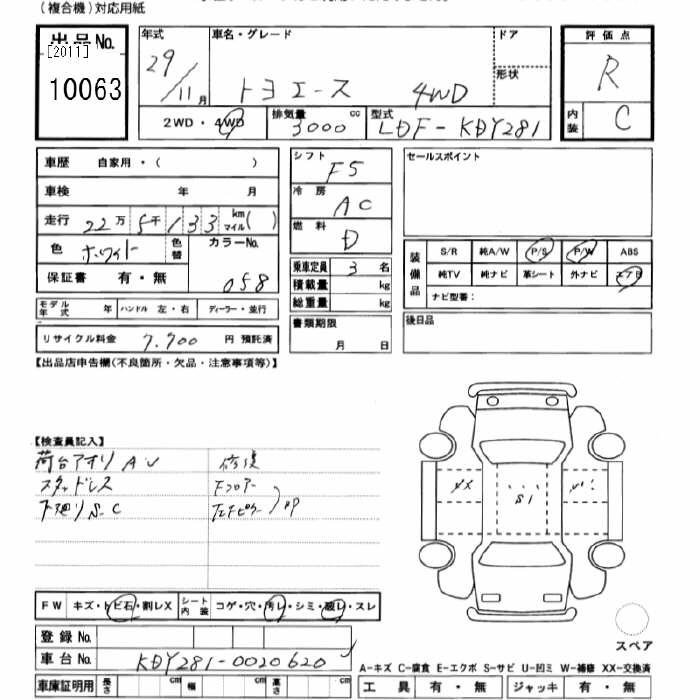 （複合機）対応用紙
出品No.
[2011]
10063
年式
29/11月
車名・グレード
トヨエース 4WD
ドア
形状
評価点
R
内装
C
2WD・4WD
排気量 3000 cc
型式 LDF-KDY281
車歴 自家用・（ ）
車検 年 月
走行 22万5千133 km マイル( )
色 ホワイト
色替
カラーNo. 058
保証書 有・無
モデル年式 年
ハンドル 左・右
ディーラー・並行
リサイクル料金 7,700 円 預託済
シフト F5
冷房 AC
燃料 D
乗車定員 3 名
積載量 kg
総重量 kg
書類期限
月 日
セールスポイント
装備品
S/R 純A/W P/S P/W ABS
純TV 純ナビ 革シート 外ナビ エアB
ナビ型番：
後日品
【出品店申告欄（不良箇所・欠品・注意事項等）】
【検査員記入】
荷台アオリ A U
スタッドレス
下廻り S-C
修復
Fフロアー
XX
S1
FW キズ・トビ石・割レX
シート内装 コゲ・穴・汚レ・シミ・破レ・スレ
登録No.
車台No. KDY281-0020620
車庫証明用 長さ cm 幅 cm 高さ cm
スペア
A-キズ C-腐食 E-エクボ S-サビ U-凹ミ W-補修 XX-交換済
工具 有・無 ジャッキ 有・無